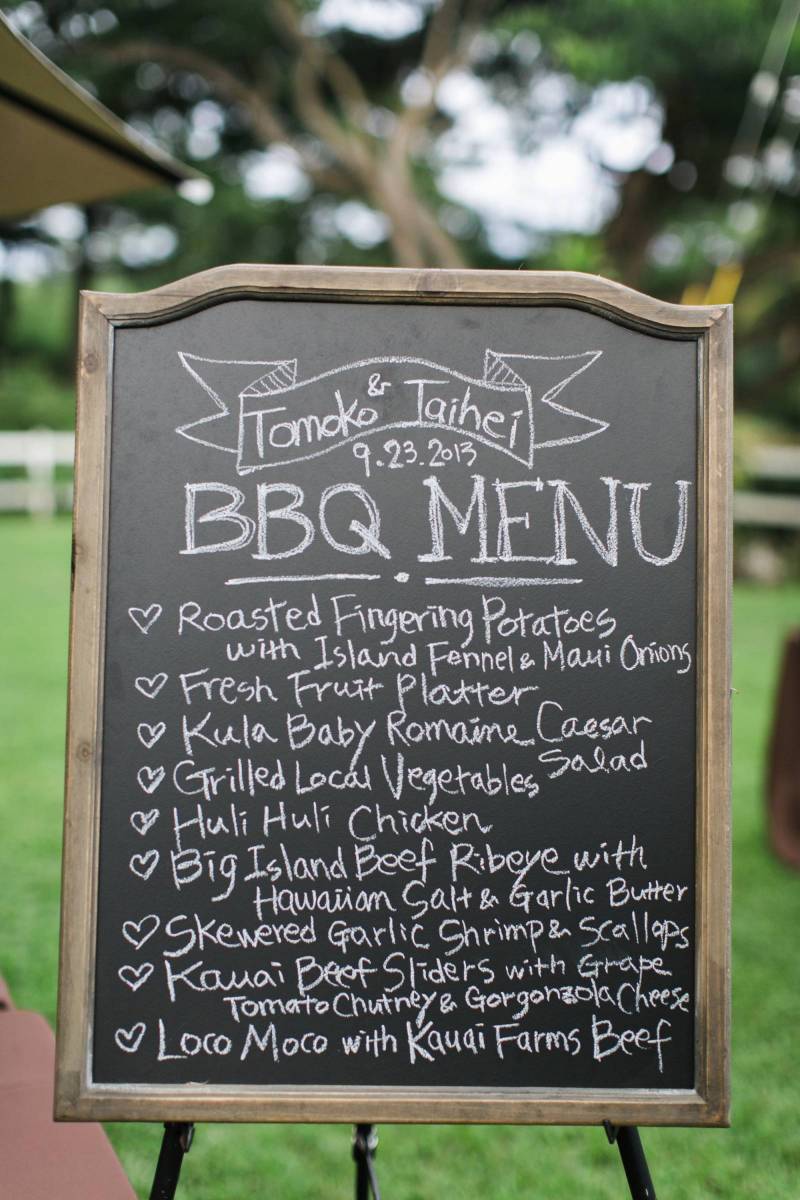 Tomoko & Taihei
9.23.2013
BBQ MENU
♡ Roasted Fingering Potatoes
with Island Fennel & Maui Onions
♡ Fresh Fruit Platter
♡ Kula Baby Romaine Caesar
Salad
♡ Grilled Local Vegetables
♡ Huli Huli Chicken
♡ Big Island Beef Ribeye with
Hawaiian Salt & Garlic Butter
♡ Skewered Garlic Shrimp & Scallops
♡ Kauai Beef Sliders with Grape
Tomato Chutney & Gorgonzola Cheese
♡ Loco Moco with Kauai Farms Beef